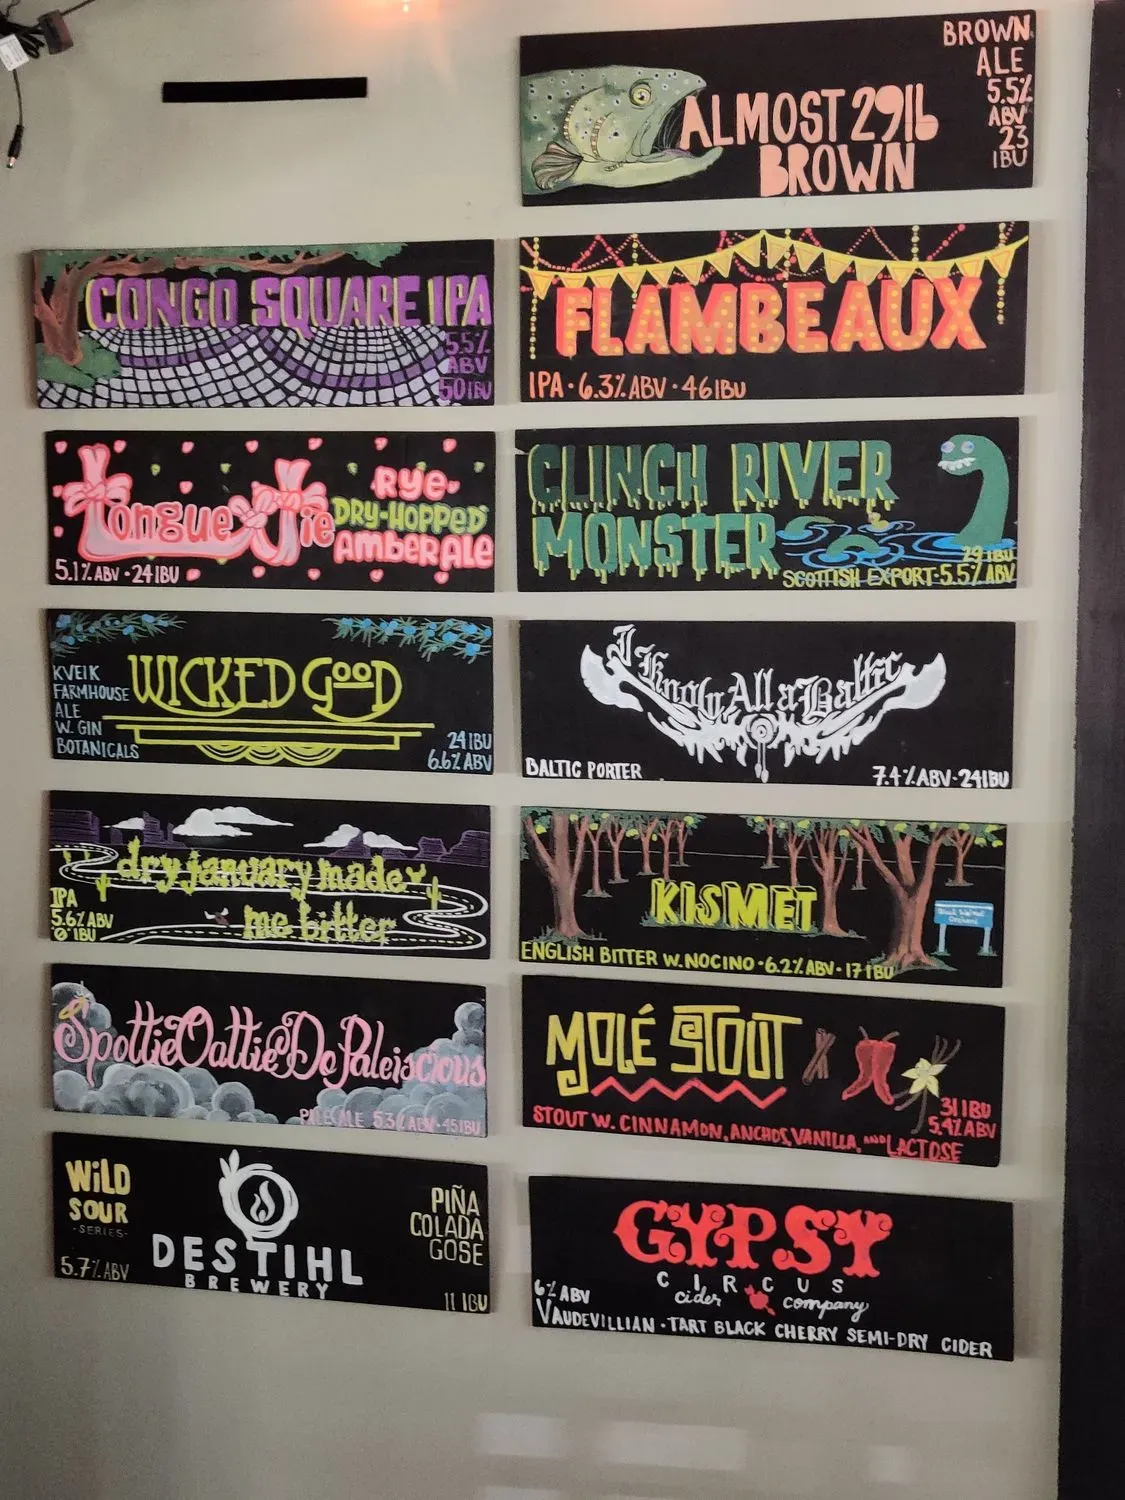 ALMOST 29lb
BROWN
BROWN
ALE
5.5%
ABV
23
IBU
CONGO SQUARE IPA
5.5%
ABV
50 IBU
FLAMBEAUX
IPA · 6.3% ABV · 46 IBU
Tongue Tie
RYE-
DRY-HOPPED
AMBER ALE
5.1% ABV · 24 IBU
CLINCH RIVER
MONSTER
29 IBU
SCOTTISH EXPORT · 5.5% ABV
WICKED GOOD
KVEIK
FARMHOUSE
ALE
W. GIN
BOTANICALS
24 IBU
6.6% ABV
I Know All a Baltic
BALTIC PORTER
7.4% ABV · 24 IBU
dry january made
me bitter
IPA
5.6% ABV
"0" IBU
KISMET
ENGLISH BITTER W. NOCINO · 6.2% ABV · 17 IBU
SpottieOattieDoPaleiscious
PALE ALE 5.3% ABV · 45 IBU
MOLÉ STOUT
31 IBU
5.4% ABV
STOUT W. CINNAMON, ANCHOS, VANILLA, AND LACTOSE
WILD
SOUR
-SERIES-
5.7% ABV
DESTIHL
BREWERY
PIÑA
COLADA
GOSE
11 IBU
GYPSY
CIRCUS
cider company
6% ABV
VAUDEVILLIAN · TART BLACK CHERRY SEMI-DRY CIDER